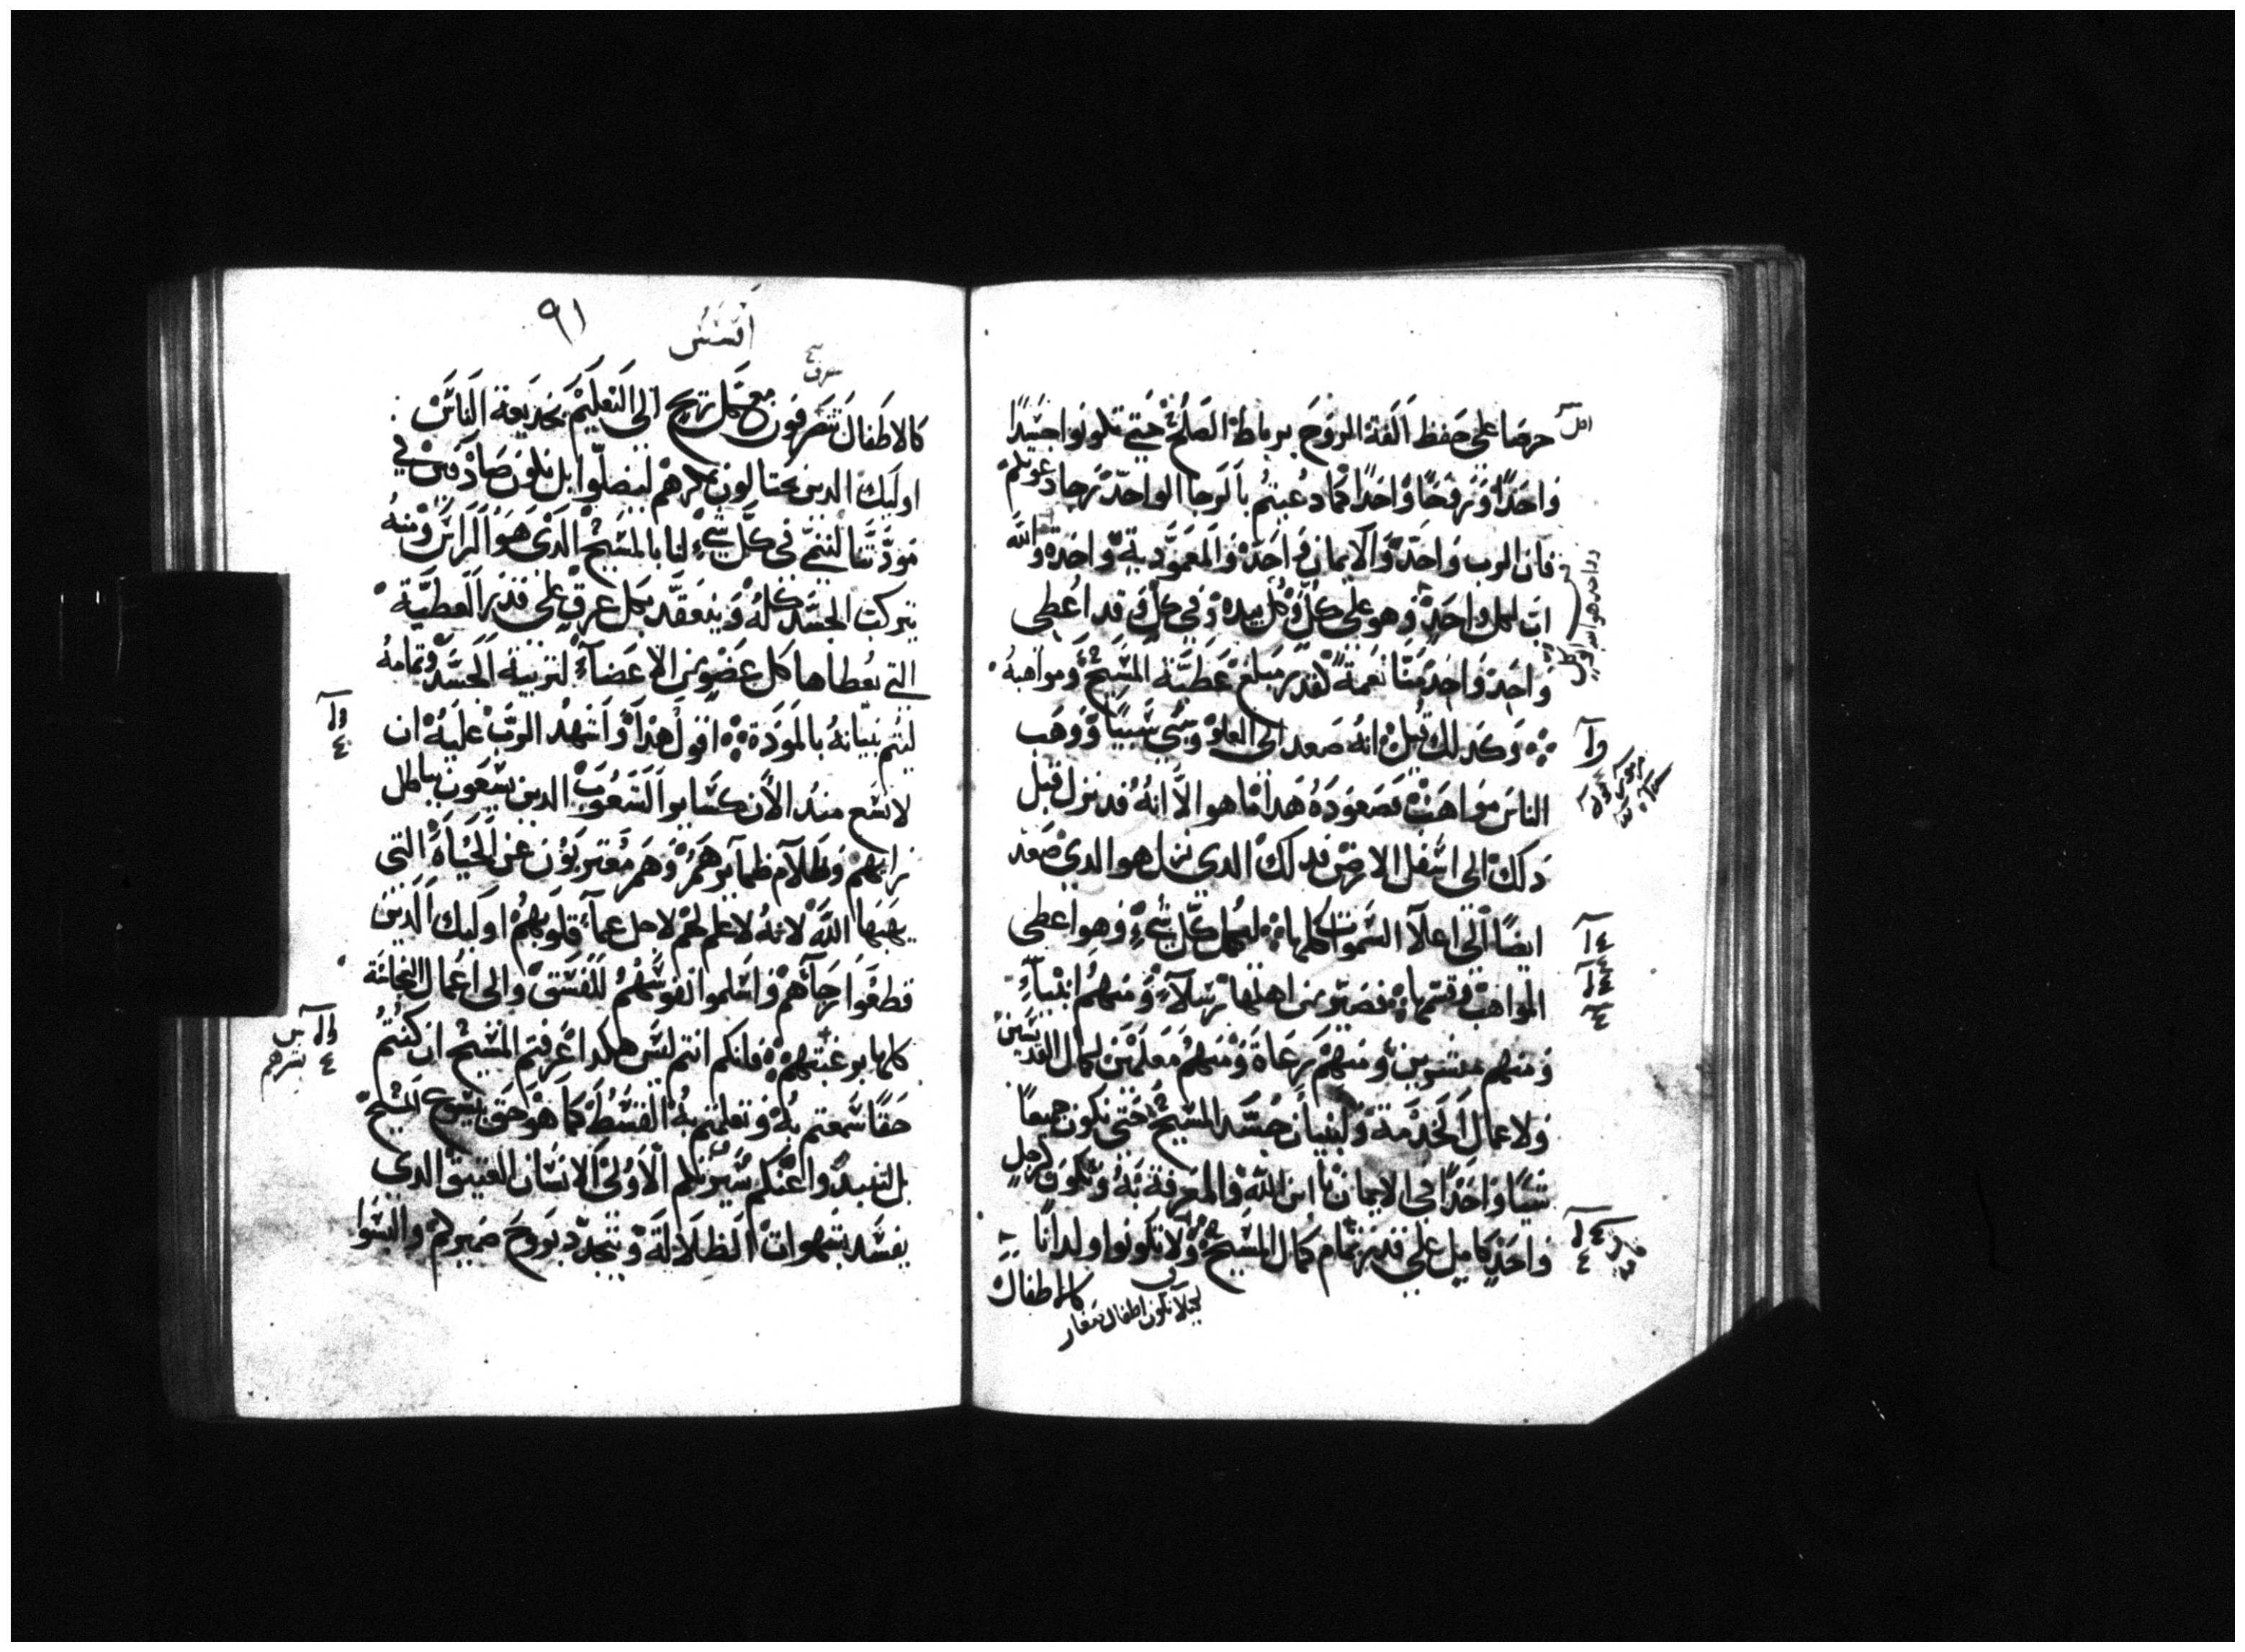 حرصا على حفظ الفة الروح برباط الصلح حتي تكونوا جسدًا
واحدًا وروحًا واحدًا كما دعيتم بالرجا الواحد رجا دعوتكم
فان الرب واحد والايمان واحد والمعمودية واحدة والله
اب لكل واحد وهو على كل وكل بيده وفي كل قد اعطى
واحد واحد منا نعمة لقدر مبلغ عطية المسيح ومواهبه
وكذلك قيل انه صعد الى العلو وسبى سبيًا ووهب
الناس مواهب فصعوده هذا ما هو الا انه قد نزل قبل
ذلك الى اسفل الارض فدلك الدى نزل هو الدى صعد
ايضًا الى اعلا السموات كلها ليكمل كل شيء وهو اعطى
المواهب وقسمها فصير من اهلها رسلاء ومنهم انبياء
ومنهم مبشرين ومنهم رعاة ومنهم معلمين لكمال القديسين
ولاعمال الخدمة ولبنيان جسد المسيح حتى نكون جميعًا
شيًا واحدًا في الايمان بابن الله والمعرفة به ونكون كرجل
واحد كامل على قدر تمام كمال المسيح ولا تكونوا ولدانا
كالاطفال
لكيلا نكون اطفال صغار
٩١
افسس
كالاطفال تتصرفون مع كل ريح الى التعليم بخديعة الناس
اوليك الدين يحتالون بمكرهم ليضلوا بل نكون صادقين في
مودتنا لننمى في كل شيء لنا بالمسيح الدى هو الراس ومنه
يتركب الجسد كله وينعقد بكل عرق على قدر العطية
التي يعطاها كل عضو من الاعضاء لتربية الجسد وتمامه
ليتم بنيانه بالمودة اقول هذا واشهد الرب عليه ان
لا تسع مند الأن كساير الشعوب الدين يسعون بباطل
رايهم وظلام ضمايرهم وهم معتربون عن الحياة التى
يهبها الله لانه لا علم لهم لاجل عماء قلوبهم اوليك الدين
قطعوا رجآهم واسلموا نفوسهم للفسق والى اعمال النجاسة
كلها برغبتهم فانكم انتم ليس هكدا عرفتم المسيح ان كنتم
حقًا سمعتم به وتعلمتم به القسط كما هو حق بيسوع المسيح
بل لتبدوا عنكم سيرتكم الاولى الانسان العتيق الدى
يفسد بشهوات الظلالة وتتجدد بروح ضميركم والبسوا